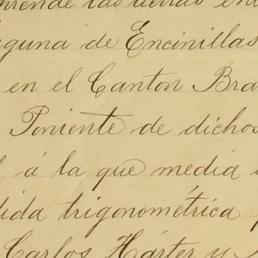 las tierras
aguna de Encinillas
en el Canton Bra
Poniente de dichos
á la que media
dida trigonométrica
Carlos Hárter y